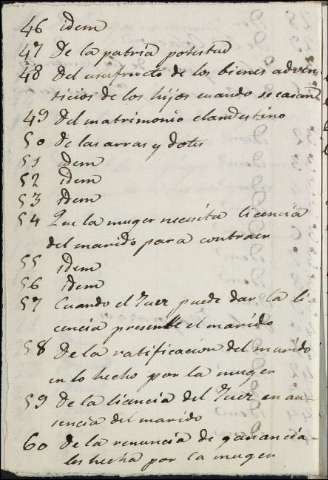 46 idem
47 De la patria potestad
48 Del usufructo de los bienes adven
ticios de los hijos cuando se casan
49 Del matrimonio clandestino
50 De las arras y dotes
51 idem
52 idem
53 idem
54 Que la muger necesita licencia
del marido para contraer
55 idem
56 idem
57 Cuando el Juez puede dar la li
cencia presente el marido
58 De la ratificacion del marido
en lo hecho por la muger
59 De la licencia del Juez en au
sencia del marido
60 De la renuncia de ganancia
les hecha por la muger